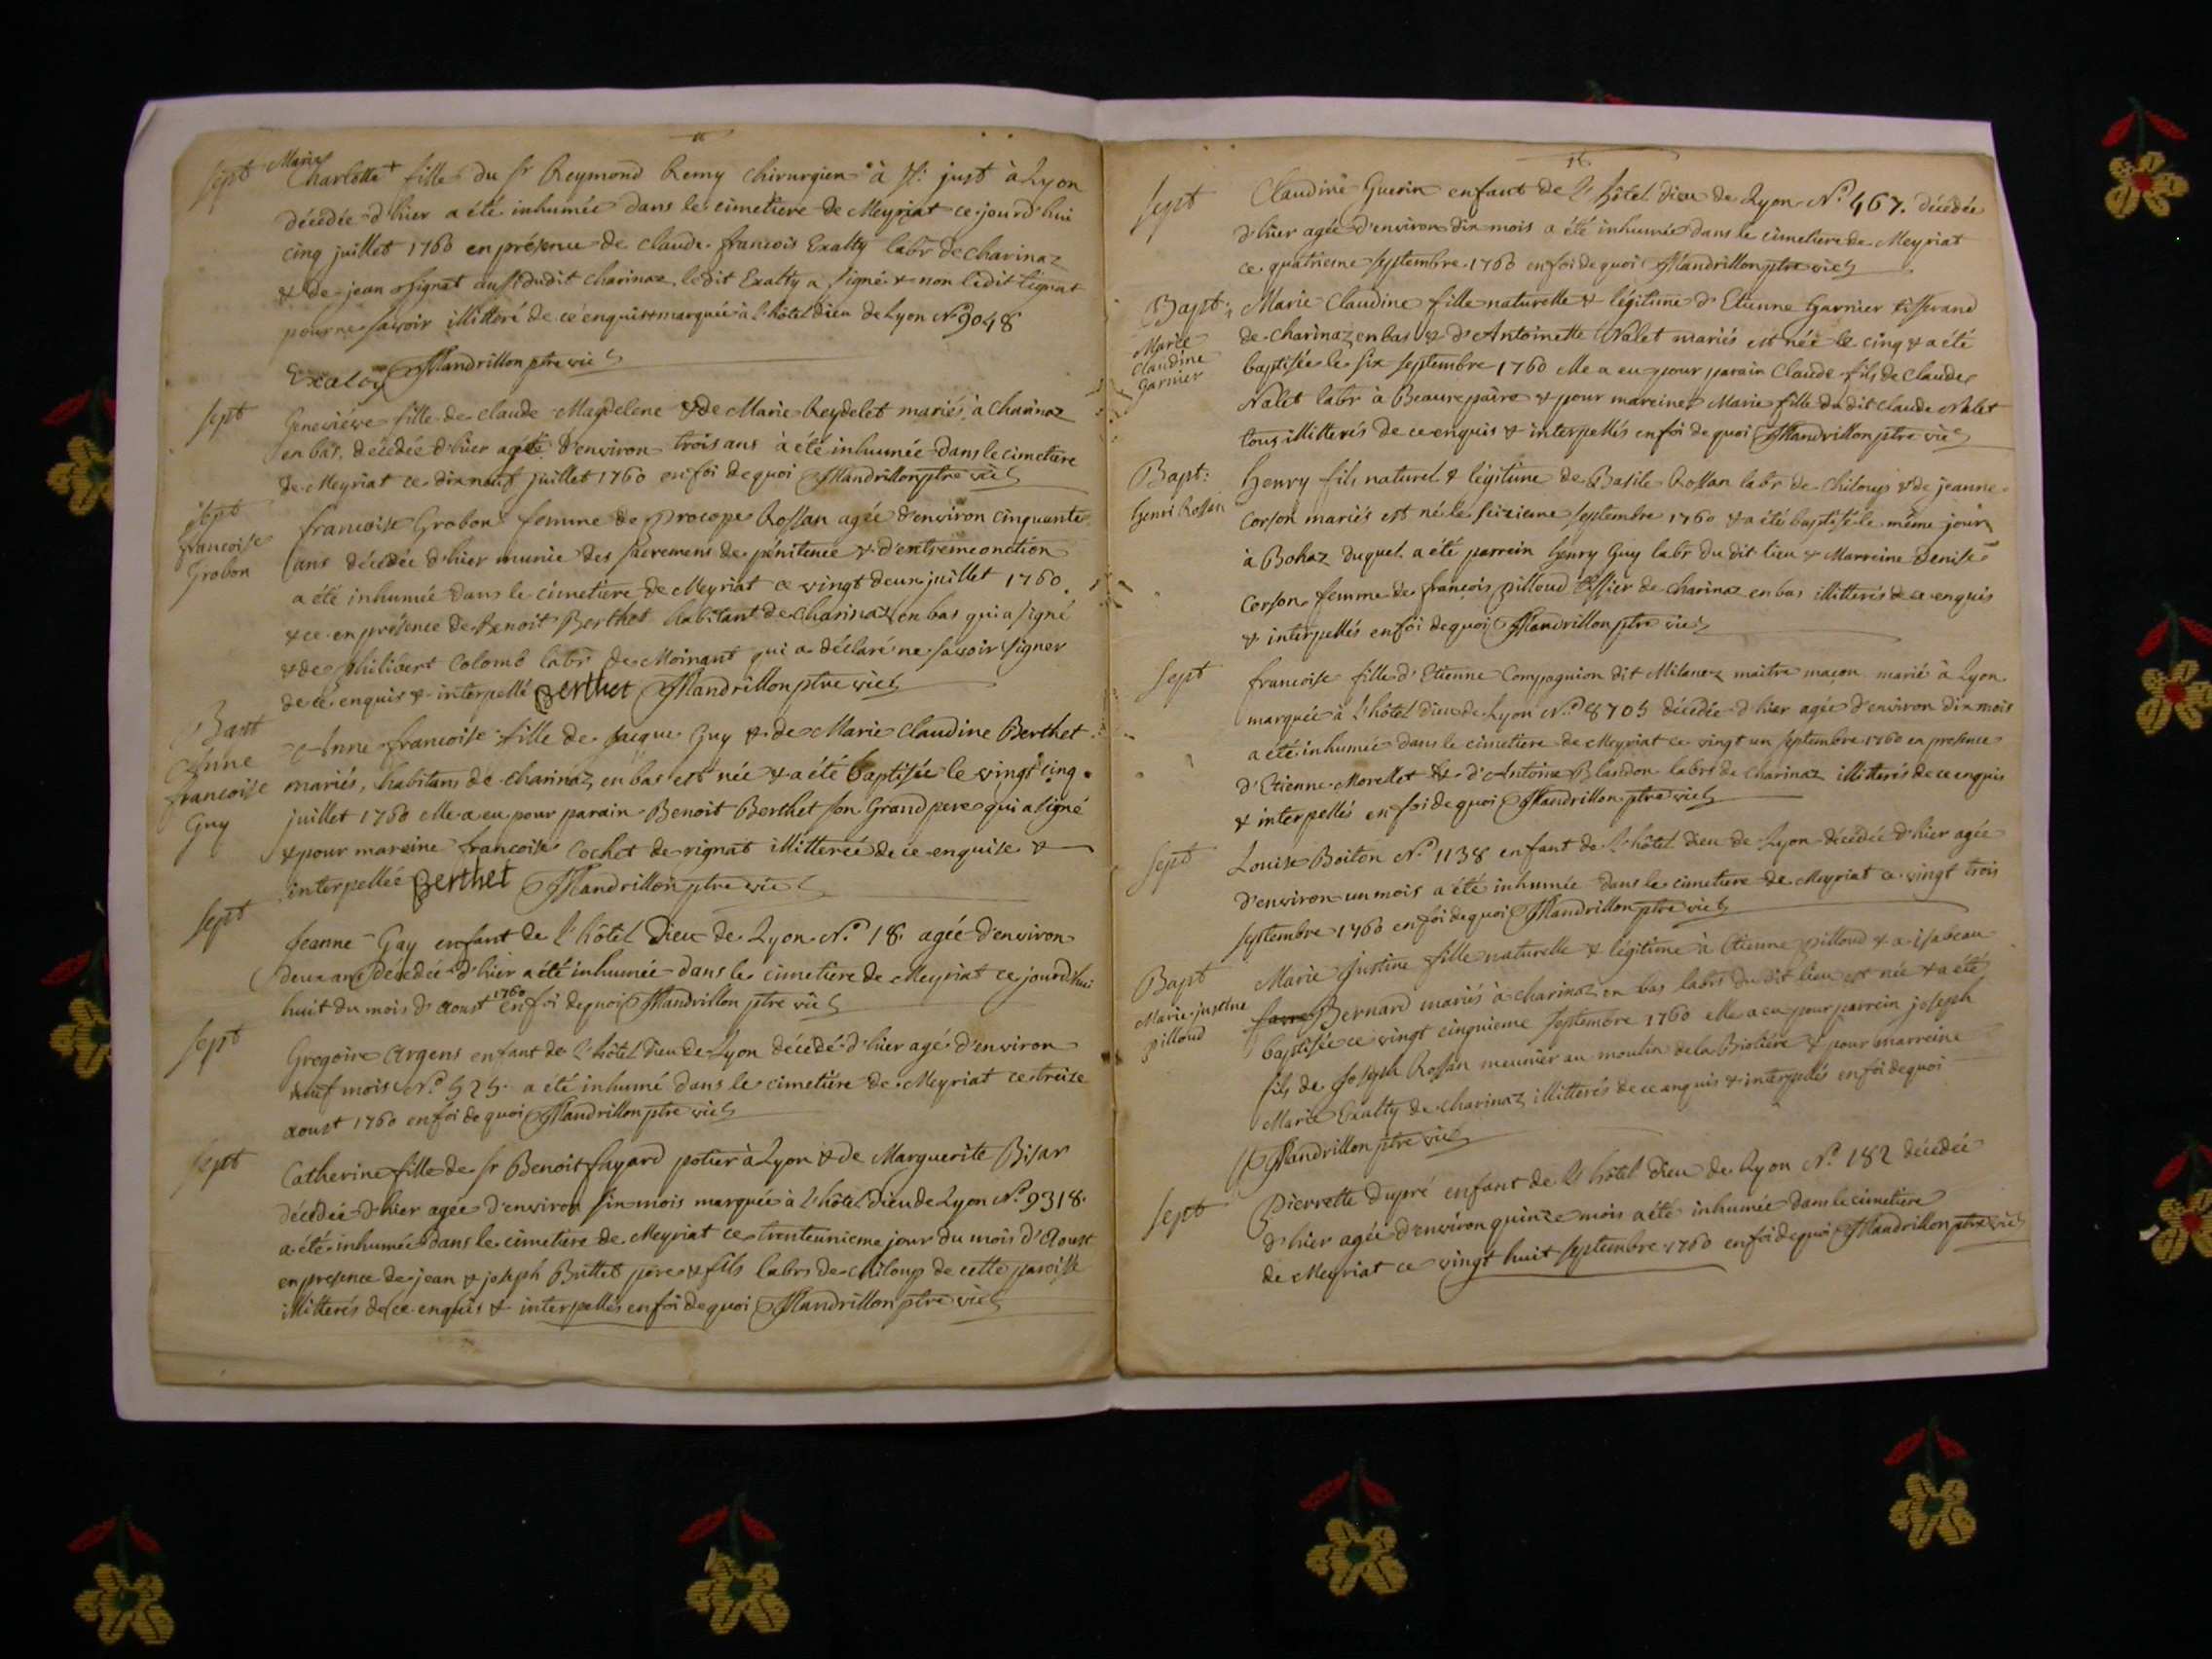 11
Sept
Marie
Charlotte + fille du Sr Reymond Remy chirurgien à St. just à Lyon
décédée d'hier a été inhumée dans le cimetiere de Meyriat ce jourd'hui
cinq juillet 1760 en présence de claude francois Exalty labr de charinaz
& de jean Tignat aussi dudit charinaz, ledit Exalty a signé & non ledit Tignat
pour ne savoir illitteré de ce enquis & marquée à l'hôtel dieu de Lyon No 9048
Exalty Mandrillon ptre vic
Sept
Genevieve fille de claude Magdelene & de Marie Reydelet mariés à charinaz
en bas, décédée d'hier agée d'environ trois ans a été inhumée dans le cimetiere
de Meyriat ce dix neuf juillet 1760 en foi de quoi Mandrillon ptre vic
Sept
francoise
Grobon
francoise Grobon femme de procope Rossan agée d'environ cinquante
ans décédée d'hier munie des sacremens de pénitence & d'extremeonction
a été inhumée dans le cimetiere de Meyriat ce vingt deux juillet 1760.
& ce en présence de Benoit Berthet habitant de charinaz en bas qui a signé
& de philibert Colomb labr de Moinant qui a déclaré ne savoir signer
de ce enquis & interpellé Berthet Mandrillon ptre vic
Bapt
Anne
francoise
Guy
Anne francoise fille de jacque Guy & de Marie Claudine Berthet
mariés, habitans de charinaz en bas est née & a été baptisée le vingt cinq
juillet 1760 elle a eu pour parain Benoit Berthet son Grand pere qui a signé
& pour mareine francoise Cochet de rignat illitterée de ce enquise &
interpellée Berthet Mandrillon ptre vic
Sept
Jeanne Gay enfant de l'hôtel Dieu de Lyon No 18 agée d'environ
deux ans décédée d'hier a été inhumée dans le cimetiere de Meyriat ce jourd'hui
huit du mois d'aoust 1760 en foi de quoi Mandrillon ptre vic
Sept
Gregoire Argens enfant de l'hôtel Dieu de Lyon décédé d'hier agé d'environ
neuf mois No 525 a été inhumé dans le cimetiére de Meyriat ce treize
aoust 1760 en foi de quoi Mandrillon ptre vic
Sept
Catherine fille de Sr Benoit fayard potier à Lyon & de Marguerite Bisar
décédée d'hier agée d'environ six mois marquée à l'hôtel Dieu de Lyon No 9318
a été inhumée dans le cimetiere de Meyriat ce trenteunieme jour du mois d'Aoust
en presence de jean & joseph Buttet pere & fils labrs de chiloup de cette paroisse
illitterés de ce enquis & interpellés en foi de quoi Mandrillon ptre vic
Sept
Claudine Guerin enfant de l'hôtel Dieu de Lyon No 467. décédée
d'hier agée d'environ dix mois a été inhumée dans le cimetiere de Meyriat
ce quatrieme septembre 1760 en foi de quoi Mandrillon ptre vic
Bapt:
Marie
Claudine
Garnier
Marie Claudine fille naturelle & légitime d'Etienne Garnier tisserand
de charinaz en bas & d'Antoinette Nalet mariés est née le cinq & a été
baptisée le six septembre 1760 elle a eu pour parain Claude fils de Claude
Nalet labr à Beaurepaire & pour mareine Marie fille du dit Claude Nalet
tous illitterés de ce enquis & interpellés en foi de quoi Mandrillon ptre vic
Bapt:
henri Rossan
henry fils naturel & légitime de Basile Rossan labr de chiloup & de jeanne
Corson mariés est né le seizieme septembre 1760 & a été baptisé le même jour
à Bohaz duquel a été parrein henry Guy labr du dit lieu & Marreine Denise
Corson femme de françois pilloud tissier de charinaz en bas illitterés de ce enquis
& interpellés en foi de quoi Mandrillon ptre vic
Sept
francoise fille d'Etienne Compagnion dit Milanez maitre maçon marié à Lyon
marquée à l'hôtel dieu de Lyon No 8705 décédée d'hier agée d'environ dix mois
a été inhumée dans le cimetiere de Meyriat ce vingt un septembre 1760 en presence
d'Etienne Morellet & d'Antoine Blandon labrs de charinaz illitterés de ce enquis
& interpellés en foi de quoi Mandrillon ptre vic
Sept
Louise Boiton No 1138 enfant de l'hôtel Dieu de Lyon décédée d'hier agée
d'environ un mois a été inhumée dans le cimetiere de Meyriat ce vingt trois
septembre 1760 en foi de quoi Mandrillon ptre vic
Bapt
Marie justine
pilloud
Marie Justine fille naturelle & légitime à Etienne pilloud & a isabeau
Bernard mariés à charinaz en bas labrs du dit lieu est née & a été
baptisée ce vingt cinquieme septembre 1760 elle a eu pour parrein joseph
fils de Joseph Rossan meunier au moulin de la Biolière & pour marreine
Marie Exalty de charinaz illitterés de ce enquis & interpellés en foi de quoi
Mandrillon ptre vic
Sept
Pierrette Dupré enfant de l'hôtel Dieu de Lyon No 182 décédée
d'hier agée d'environ quinze mois a été inhumée dans le cimetiere
de Meyriat ce vingt huit septembre 1760 en foi de quoi Mandrillon ptre vic